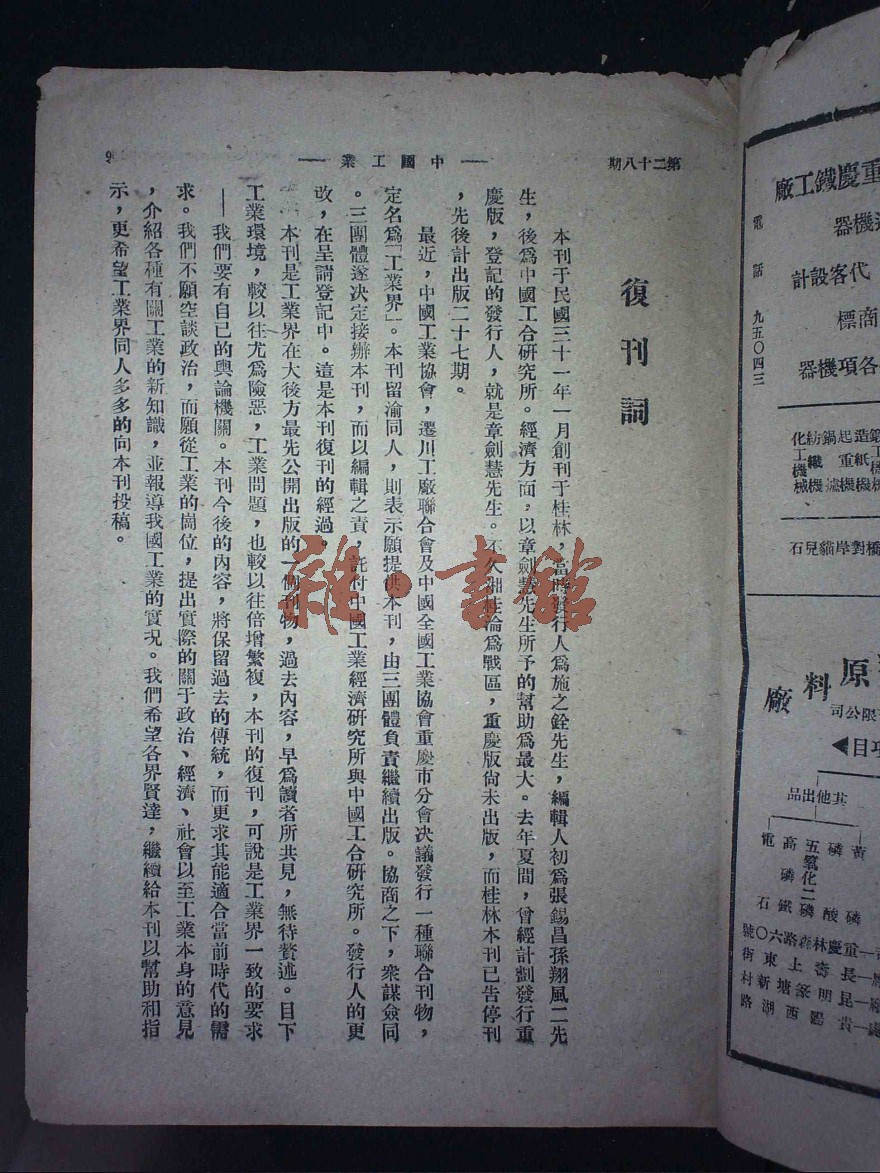 第二十八期
中國工業
9
復刊詞
本刊于民國三十一年一月創刊于桂林，當時發行人爲施之銓先生，編輯人初爲張錫昌孫翔風二先
生，後爲中國工合研究所。經濟方面，以章劍慧先生所予的幫助爲最大。去年夏間，曾經計劃發行重
慶版，登記的發行人，就是章劍慧先生。不久湘桂淪爲戰區，重慶版尚未出版，而桂林本刊已告停刊
，先後計出版二十七期。
最近，中國工業協會，遷川工廠聯合會及中國全國工業協會重慶市分會決議發行一種聯合刊物，
定名爲「工業界」。本刊留渝同人，則表示願提供本刊，由三團體負責繼續出版。協商之下，衆謀僉同
。三團體遂決定接辦本刊，而以編輯之責，託付中國工業經濟研究所與中國工合研究所。發行人的更
改，在呈請登記中。這是本刊復刊的經過。
本刊是工業界在大後方最先公開出版的一個刊物，過去內容，早爲讀者所共見，無待贅述。目下
工業環境，較以往尤爲險惡，工業問題，也較以往倍增繁複，本刊的復刊，可說是工業界一致的要求
——我們要有自已的輿論機關。本刊今後的內容，將保留過去的傳統，而更求其能適合當前時代的需
求。我們不願空談政治，而願從工業的崗位，提出實際的關于政治、經濟、社會以至工業本身的意見
，介紹各種有關工業的新知識，並報導我國工業的實況。我們希望各界賢達，繼續給本刊以幫助和指
示，更希望工業界同人多多的向本刊投稿。
雜·書館
重慶鐵工廠
機器
代客設計
商標
各項機器
電話 九五〇四三
鍋爐
起重機
造紙機
紡織機
化工機械
橋對岸貓兒石
原料廠
限公司
項目
其他出品
黃磷
磷酸
五氧化二磷
高磷鐵
電石
重慶林森路六〇號
長壽上東街
昆明篆塘新村
貴陽西湖路